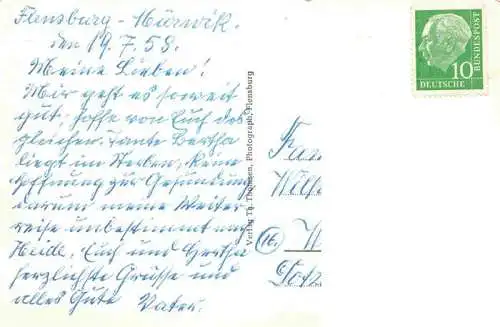 Flensburg - Mürwik.
den 19.7.58.
Meine Lieben!
Mir geht es soweit
gut, hoffe von Euch des-
gleichen. Tante Bertha
liegt im Sterben, keine
Hoffnung zur Gesundung
darum meine Weiter
reise unbestimmt nach
Heide. Euch und Hertha
herzlichste Grüsse und
alles Gute Vater.
Verlag Th. Thomsen, Photograph, Flensburg
10
DEUTSCHE
BUNDESPOST
(16)